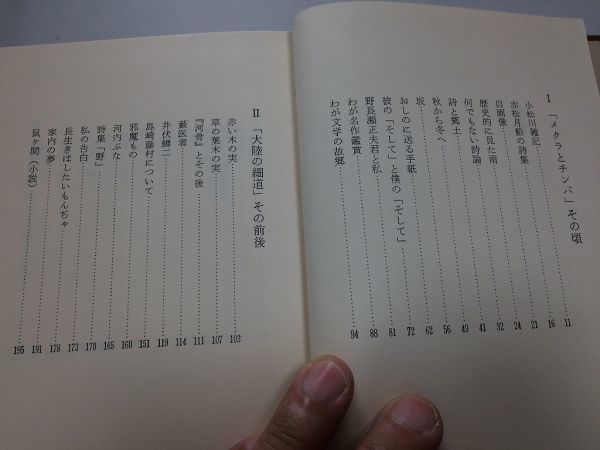 I 「メクラとチンバ」その頃
小松川雑記 11
赤松月船の詩集 16
自画像 21
歴史的に見た雨 24
何でもない詩論 32
詩と郷土 41
秋から冬へ 49
坂 56
おしのに送る手紙 62
彼の「そして」と僕の「そして」 72
野長瀬正夫君と私 81
わが名作鑑賞 88
わが文学の故郷 94
II 「大陸の細道」その前後
赤い木の実 103
草の葉木の実 107
『河骨』とその後 111
藪医者 114
井伏鱒二 119
島崎藤村について 151
邪魔もの 160
河内ぶな 165
詩集「野」 170
私の告白 173
長生きはしたいもんぢゃ 178
家内の夢 191
鼠ヶ関（小説） 195